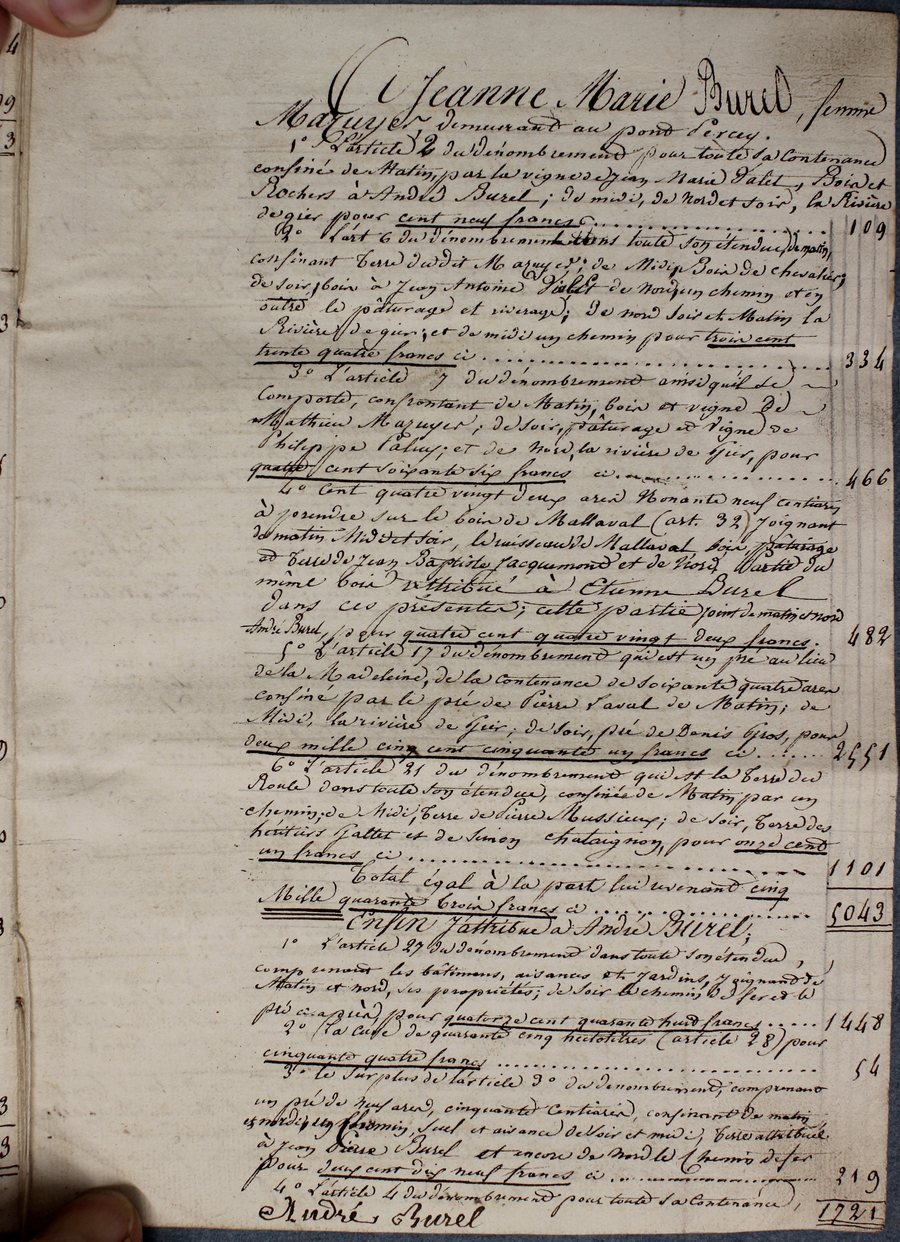 Jeanne Marie Burel, femme
Mazuyer, demeurant au pond Percey.
1° L'article 2 du dénombrement pour toute sa Contenance
confiné de Matin, par la vigne de Jean Marie Valet, Bois et
Rochers à André Burel; de midi, de Nord et soir, la Rivière
de gier pour cent neuf francs ci 109
2° L'art 6 du dénombrement dans toute son étendue, de matin,
confinant Terre du dit Mazuyer; de Midi, Bois de chevalier;
de soir, bois à Jean Antoine Valet de Nord, un chemin et en
outre le pâturage et riverage; de nord soir et Matin la
Rivière de gier; et de midi un chemin pour trois cent
trente quatre francs ci 334
3° L'article 7 du dénombrement ainsi qu'il se
Comporte, confrontant de Matin, bois et vigne de
Mathieu Mazuyer; de soir, pâturage et Vigne de
Philippe; et de Nord, la rivière de Gier, pour
quatre cent soixante six francs ci 466
4° Cent quatre vingt deux ares Nonante neuf centiares
à prendre sur le bois de Mallaval (art. 32) Joignant
de matin Midi et soir, le ruisseau de Mallaval, bois, pâturage
et Terre de Jean Baptiste Jacquemond et de Nord, Partie du
même bois attribué à Etienne Burel
dans ces présentes; cette partie joint de matin et nord
André Burel, pour quatre cent quatre vingt deux francs. 482
5° L'article 17 du dénombrement qui est un pré au lieu
de la Madeleine, de la contenance de soixante quatre ares
confiné par le pré de Pierre Laval de Matin; de
Midi, la rivière de Gier; de soir, pré de Denis Gros, pour
deux mille cinq cent cinquante un francs ci 2551
6° L'article 21 du dénombrement qui est la Terre du
Roule dans toute son étendue, confinée de Matin par un
chemin; de Midi, Terre de Pierre Mussieux; de soir, Terre des
héritiers Gallet et de Simon Chataignon, pour onze cent
un francs ci 1101
Total égal à la part lui revenant cinq
Mille quarante trois francs ci 5043
Enfin J'attribue à André Burel;
1° L'article 27 du dénombrement dans toute son étendue,
comprenant les bâtimens, aisances et Jardins, Joignant de
Matin et nord, ses propriétés; de soir le chemin de fer et le
pré ci-après, pour quatorze cent quarante huit francs 1448
2° La cuve de quarante cinq hectolitres (article 28) pour
cinquante quatre francs 54
3° le surplus de l'article 3° du dénombrement, comprenant
un pré de neuf ares, cinquante Centiares, confinant de matin
et midi, un Chemin, suel et aisance de soir et midi, Terre attribuée
à Jean Pierre Burel et encore de Nord le Chemin de fer
pour deux cent dix neuf francs ci 219
4° L'article 4 du dénombrement pour toute sa Contenance, 1721
André Burel
4
3
3
3